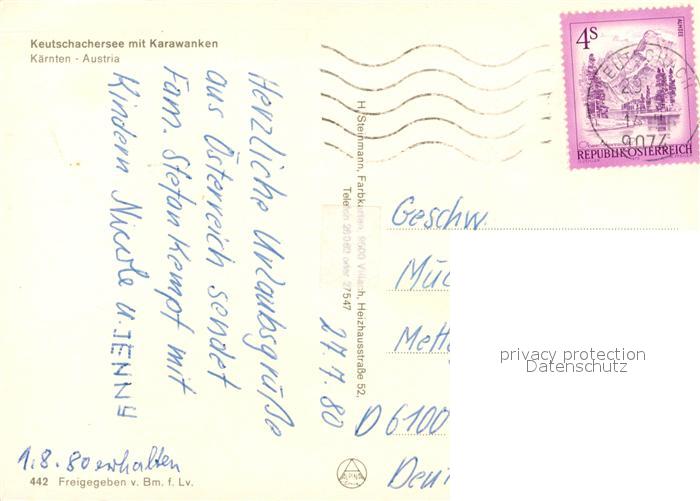 Keutschachersee mit Karawanken
Kärnten - Austria
Herzliche Urlaubsgrüße
aus Österreich sendet
Fam. Stefan Kempf mit
Kindern Nicole u. JENNY
27.7.80
1.8.80 erhalten
442 Freigegeben v. Bm. f. Lv.
H. Steinmann, Farbkarten, 9500 Villach, Heizhausstraße 52,
Telefon 26062 oder 27547
4S
ALMSEE
REPUBLIK ÖSTERREICH
KEUTSCHACH
9074
Geschw.
Mü
Mett
D 6100
Deu
privacy protection
Datenschutz